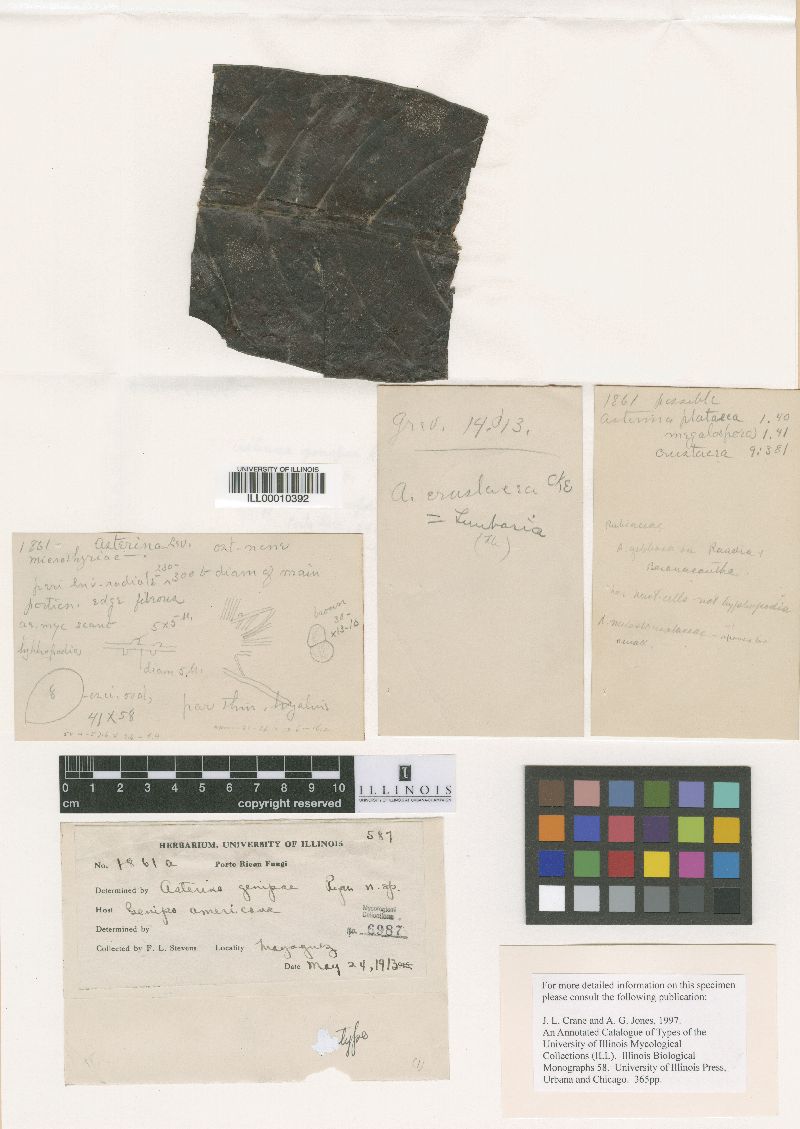 UNIVERSITY OF ILLINOIS
ILL00010392
Grev. 14:13.
A. crustacea Cke
= Lembosia
(Th.)
1861 possible
Asterina plataea 1.40
megalospora 1.41
crustacea 9:381
Rubiaceae
A. gibbosa on Randia &
has nucl-cells not hyphopodia
A melastomataceae -
small.
1861- Asterina Lev. ost-none
microthyriae -
peri inv-radiate 230-300 diam of main
portion. edge fibrous
as. myc scant 5x5 µ.
hyphopodia
diam 5 µ.
brown
30-
x13-16
8 -asci. oval,
41 x 58
par thin, hyalin
0 1 2 3 4 5 6 7 8 9 10
cm copyright reserved
I
ILLINOIS
UNIVERSITY OF ILLINOIS AT URBANA-CHAMPAIGN
587
HERBARIUM, UNIVERSITY OF ILLINOIS
No. 1861a Porto Rican Fungi
Determined by Asterina genipae Ryan n. sp.
Host Genipa americana
Mycological
Collections
Determined by 6987
Collected by F. L. Stevens Locality Mayaguez
Date May 24, 1913
type
(1)
For more detailed information on this specimen
please consult the following publication:
J. L. Crane and A. G. Jones. 1997.
An Annotated Catalogue of Types of the
University of Illinois Mycological
Collections (ILL). Illinois Biological
Monographs 58. University of Illinois Press,
Urbana and Chicago. 365pp.